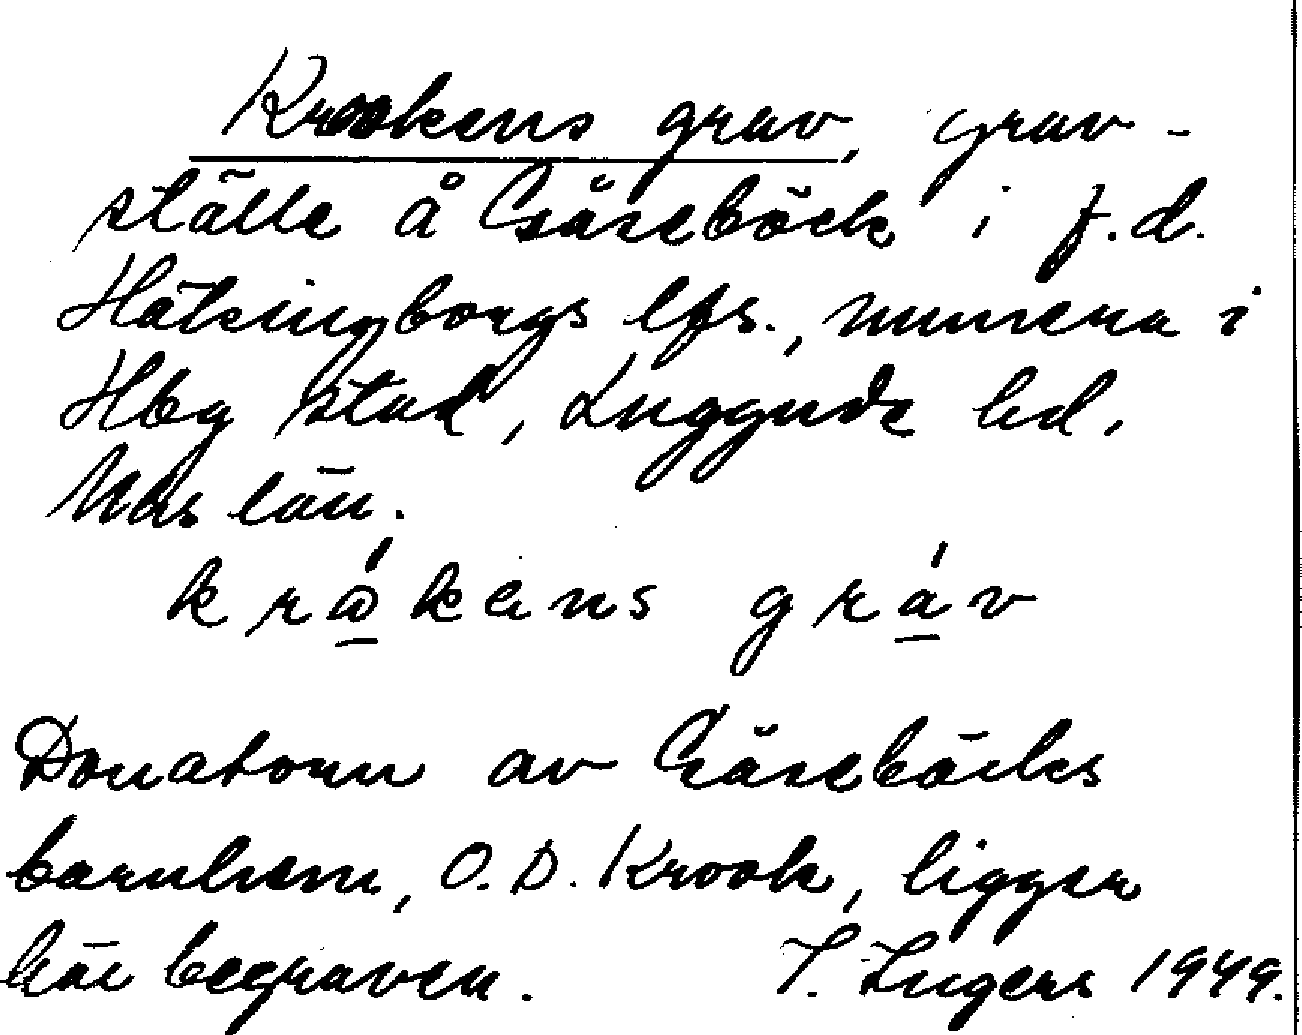 Krookens grav, grav-
ställe å Gåsebäck i f.d.
Hälsingborgs lfs., numera i
Hbg stad, Luggude hd.
Mhs län.
kråkens grav
Donatorn av Gåsebäcks
barnhem, O. D. Krook, ligger
här begraven. I. Ingers 1949.